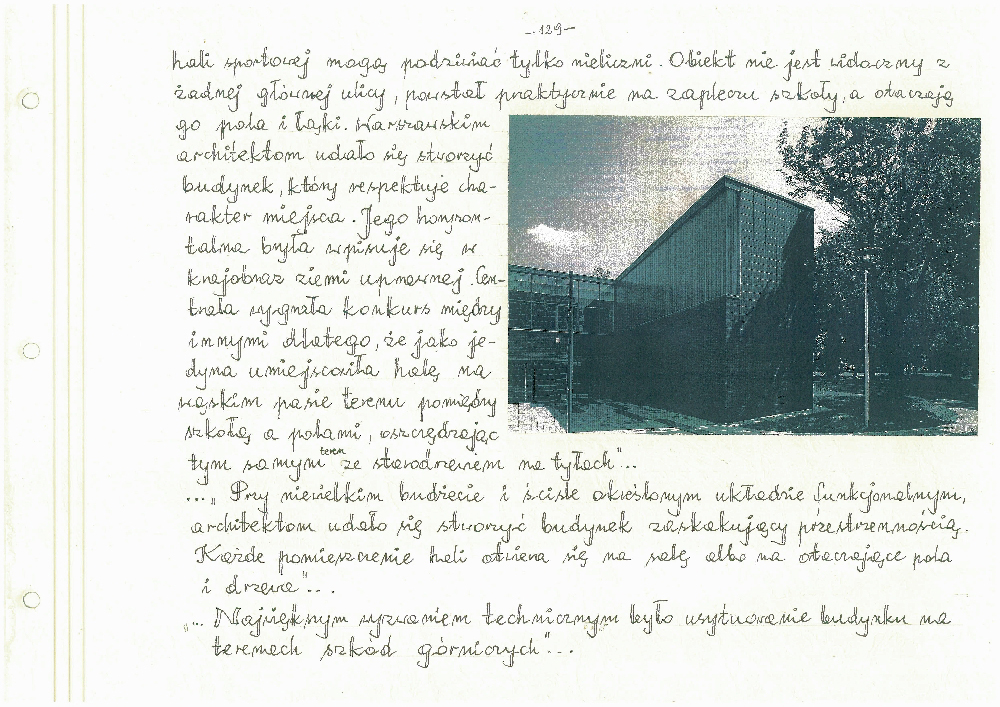 - 129 -
hali sportowej mogą podziwiać tylko nieliczni. Obiekt nie jest widoczny z
żadnej głównej ulicy, powstał praktycznie na zapleczu szkoły, a otaczają
go pola i łąki. Warszawskim
architektom udało się stworzyć
budynek, który respektuje cha-
rakter miejsca. Jego horyzon-
talna bryła wpisuje się w
krajobraz ziemi uprawnej. Cen-
trala wygrała konkurs między
innymi dlatego, że jako je-
dyna umiejscowiła halę na
wąskim pasie terenu pomiędzy
szkołą a polami, oszczędzając
tym samym teren ze starodrzewiem na tyłach"...
..." Przy niewielkim budżecie i ściśle określonym układzie funkcjonalnym,
architektom udało się stworzyć budynek zaskakujący przestrzennością.
Każde pomieszczenie hali otwiera się na salę albo na otaczające pola
i drzewa"...
"... Największym wyzwaniem technicznym było usytuowanie budynku na
terenach szkód górniczych"...